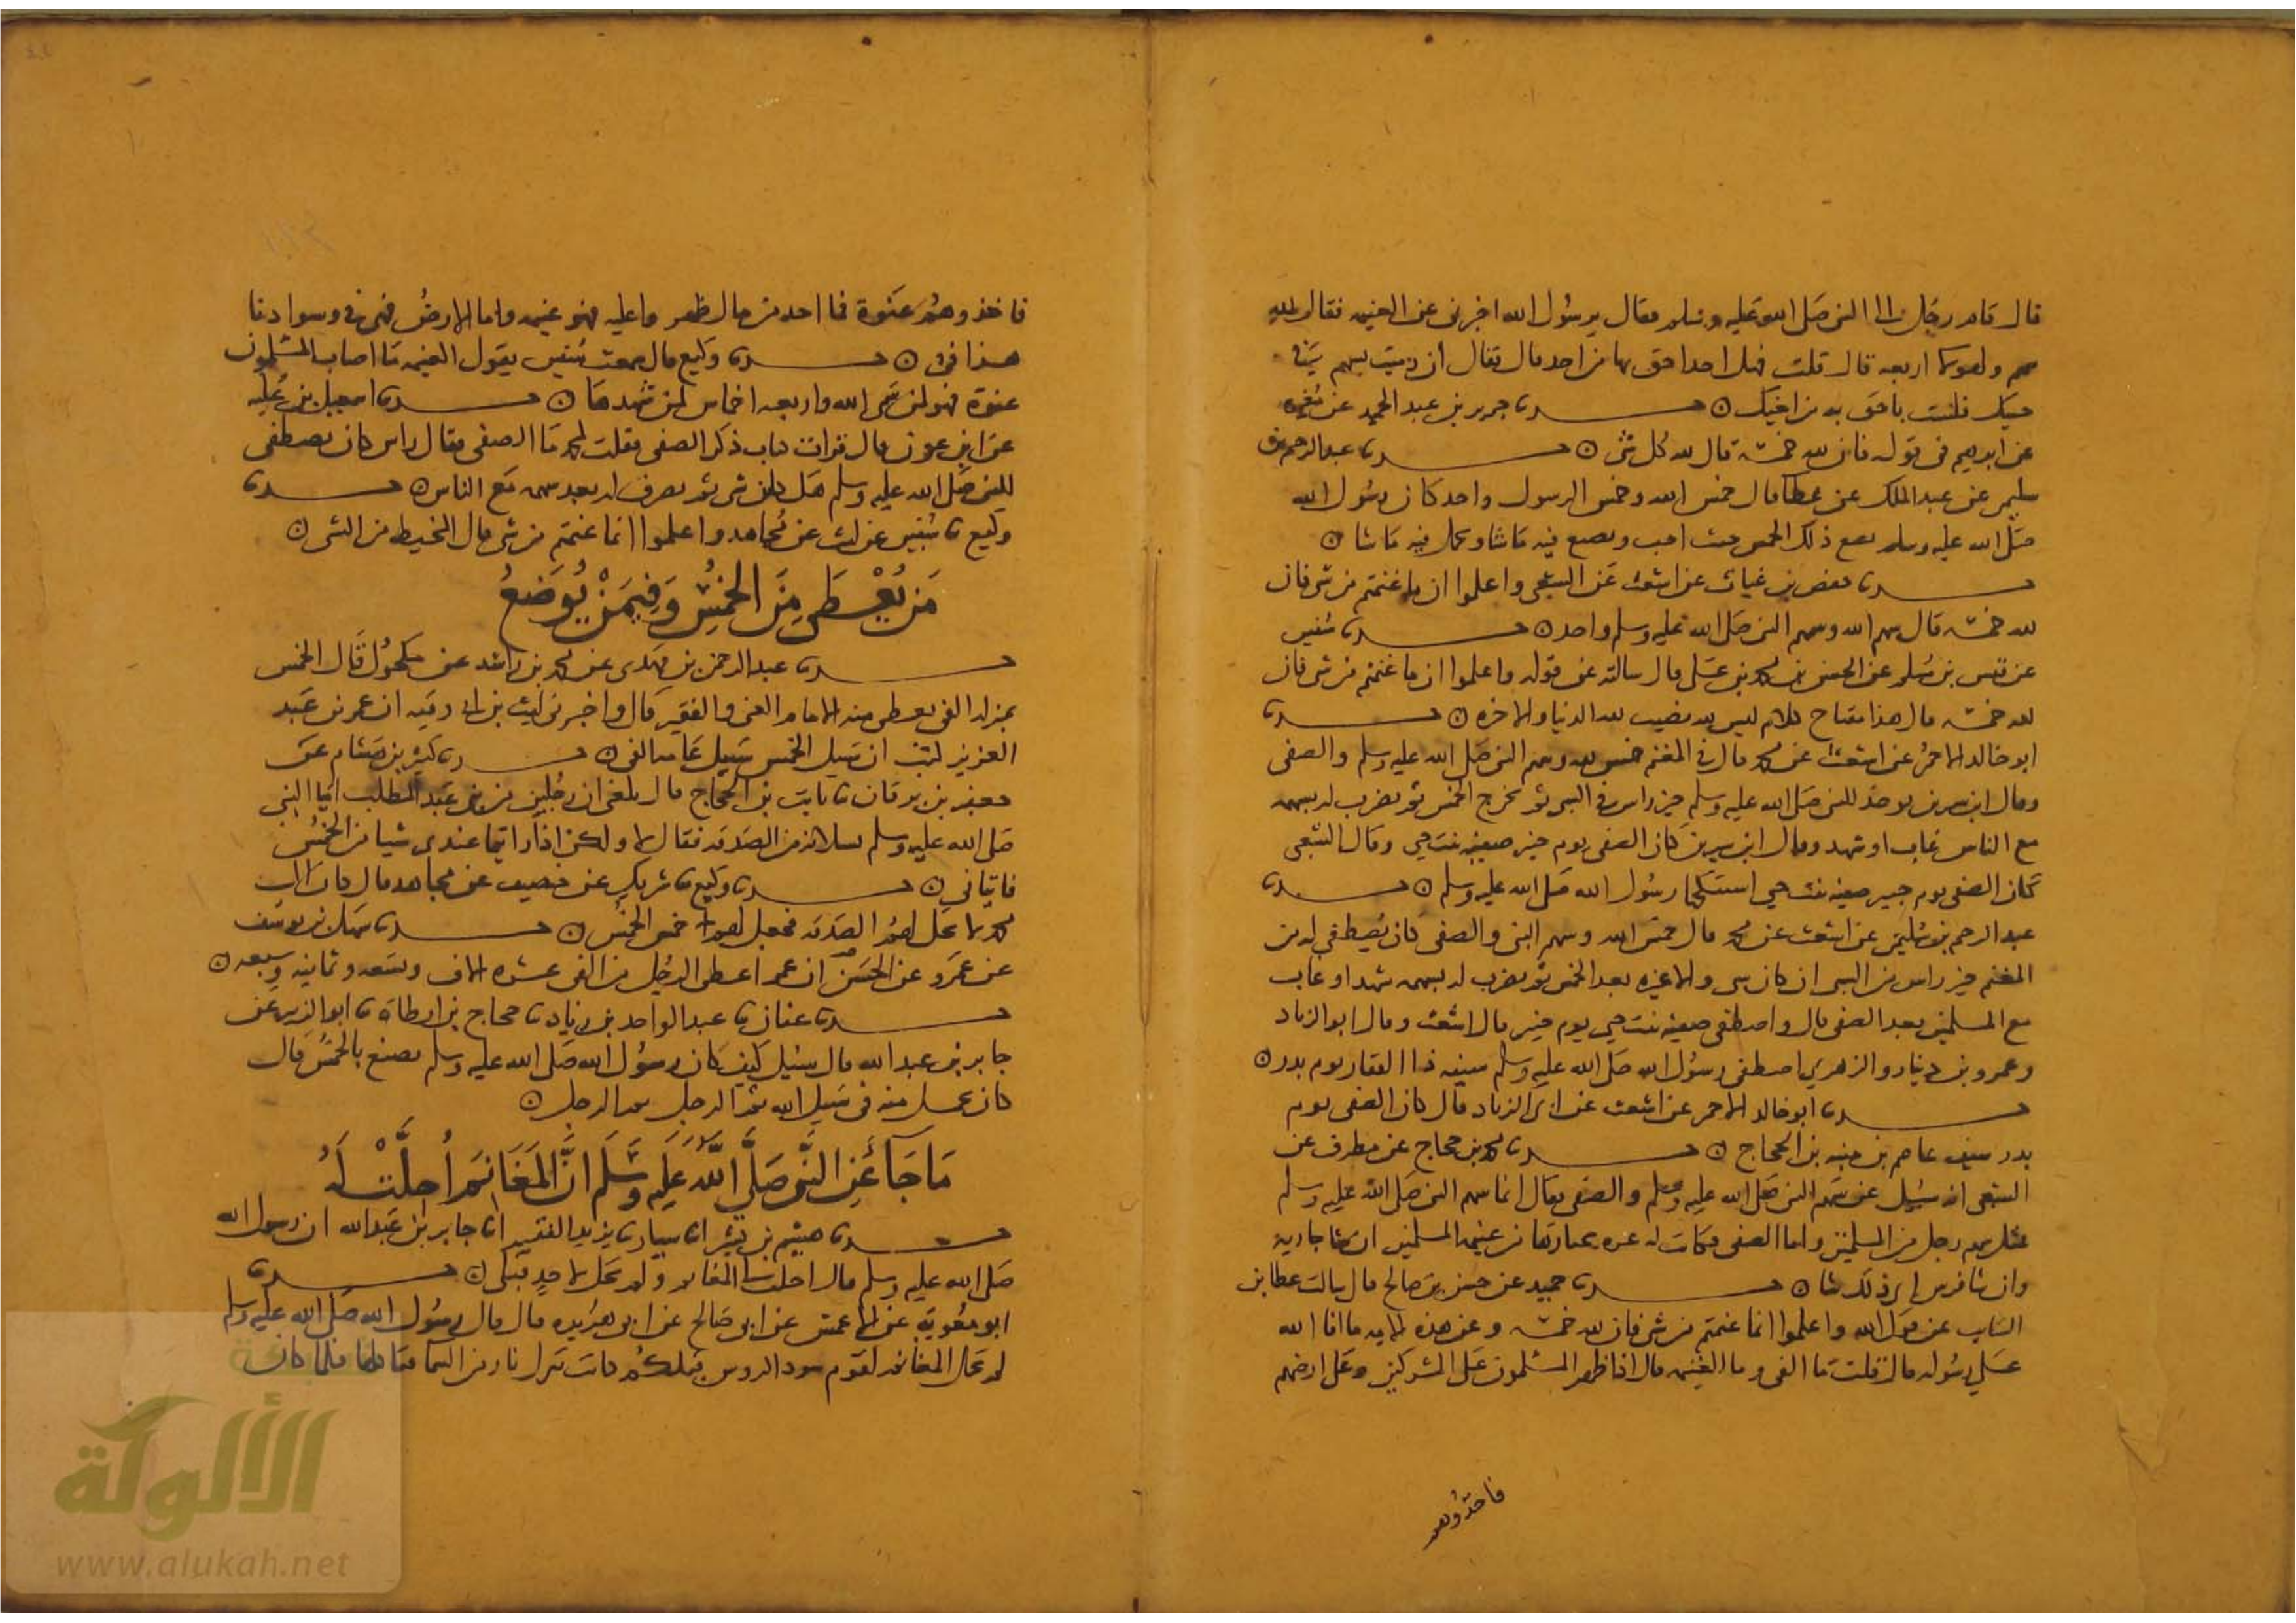 قال قام رجل الى النبي صلى الله عليه وسلم فقال يرسول الله اخبرنى عن الغنيمه فقال لله
سهم ولهولا اربعه قال قلت فهل احد احق بها من احد قال فقال ان رميت بسهم في
جنبك فلست باحق به من اخيك حدثنا جرير بن عبد الحميد عن مغيره
عن ابرهيم فى قوله فان لله خمسه قال لله كل شى حدثنا عبد الرحيم بن
سليمن عن عبد الملك عن عطا قال خمس الله وخمس الرسول واحد كان رسول الله
صلى الله عليه وسلم يضع ذلك الخمس حيث احب ويصنع فيه ما شا ويحمل فيه ما شا
حدثنا حفص بن غياث عن اشعث عن الشعبى واعلموا ان ما غنمتم من شى فان
لله خمسه قال سهم الله وسهم النبى صلى الله عليه وسلم واحد حدثنا سفين
عن قيس بن مسلم عن الحسن بن محمد بن على قال سالته عن قوله واعلموا ان ما غنمتم من شى فان
لله خمسه قال هذا مفتاح كلام ليس لله نصيب لله الدنيا والاخره حدثنا
ابو خالد الاحمر عن اشعث عن محمد قال فى المغنم خمس لله وسهم النبى صلى الله عليه وسلم والصفى
وقال ابن سيرين يوخذ للنبى صلى الله عليه وسلم خير راس فى السبى ثم يخرج الخمس ثم يضرب له بسهمه
مع الناس غاب او شهد وقال ابن سيرين كان الصفى يوم خيبر صفيه بنت حيي وقال الشعبى
كان الصفى يوم خيبر صفيه بنت حيي استنكحها رسول الله صلى الله عليه وسلم حدثنا
عبد الرحيم بن سليمن عن اشعث عن محمد قال خمس الله وسهم النبى والصفى كان يصطفى له من
المغنم خير راس من السبى ان كان سبى والا غيره بعد الخمس ثم يضرب له بسهمه شهد او غاب
مع المسلمين بعد الصفى قال واصطفى صفيه بنت حيي يوم خيبر قال اشعث وقال ابو الزناد
وعمرو بن دينار والزهرى اصطفى رسول الله صلى الله عليه وسلم سيفه ذا الفقار يوم بدر
حدثنا ابو خالد الاحمر عن اشعث عن ابى الزناد قال كان الصفى يوم
بدر سيف عاصم بن منبه بن الحجاج حدثنا محمد بن حجاج عن مطرف عن
الشعبى انه سئل عن سهم النبى صلى الله عليه وسلم والصفى فقال انما سهم النبى صلى الله عليه وسلم
مثل سهم رجل من المسلمين واما الصفى فكانت له غره يختارها من غنيمه المسلمين ان شا جاريه
وان شا فرس اى ذلك شا حدثنا حميد عن حسن بن صالح قال سالت عطا بن
السايب عن قول الله واعلموا انما غنمتم من شى فان لله خمسه وعن هذه الايه ما افا الله
على رسوله قال قلت ما الفى وما الغنيمه قال اذا ظهر المسلمون على المشركين وعلى ارضهم
فاخذوهم
فاخذوهم عنوة فما اخذ من مال ظهر وا عليه فهو غنيمه واما الارض فهى فى وسوادنا
هذا فى حدثنا وكيع قال سمعت سفين يقول الغنيمه ما اصاب المسلمون
عنوة فهو لمن سمى الله واربعه اخماس لمن شهدها حدثنا اسمعيل بن عليه
عن ابن عون قال قرات كتاب ذكر الصفى فقلت لمحمد ما الصفى فقال راس كان يصطفى
للنبى صلى الله عليه وسلم قبل كل شى ثم يضرب له بعد سهمه مع الناس حدثنا
وكيع ثنا سفين عن ليث عن مجاهد واعلموا انما غنمتم من شى قال المخيط من الشى
مَن يُعْطَى مِنَ الخُمُسِ وَفِيمَنْ يُوضَعُ
حدثنا عبد الرحمن بن مهدى عن محمد بن راشد عن مكحول قال الخمس
بمنزله الفى يعطى منه الامام الغنى والفقير قال واخبرنى ليث بن ابى رقيه ان عمر بن عبد
العزيز كتب ان سبيل الخمس سبيل عامه الفى حدثنا كثير بن هشام عن
جعفر بن برقان ثنا ثابت بن الحجاج قال بلغنى ان رجلين من بنى عبد المطلب اتيا النبى
صلى الله عليه وسلم يسلانه من الصدقه فقال لا ولكن اذا رايتما عندى شيا من الخمس
فاتيانى حدثنا وكيع ثنا شريك عن خصيف عن مجاهد قال كان ال
محمد لا تحل لهم الصدقه فجعل لهم خمس الخمس حدثنا سهل بن يوسف
عن عمرو عن الحسن ان عمر اعطى الرجل من الفى عشره الاف وتسعه وثمانيه وسبعه
حدثنا عفان ثنا عبد الواحد بن زياد ثنا حجاج بن ارطاة ثنا ابو الزبير عن
جابر بن عبد الله قال سئل كيف كان رسول الله صلى الله عليه وسلم يصنع بالخمس قال
كان يحمل منه فى سبيل الله ثم الرجل ثم الرجل
مَا جَاءَ عَنِ النَّبِى صَلَّى اللَّهُ عَلَيهِ وَسَلَّمَ انَّ المَغَانِمَ اُحِلَّتْ لَهُ
حدثنا هشيم بن بشير انا سيار ثنا يزيد الفقير انا جابر بن عبد الله ان رسول الله
صلى الله عليه وسلم قال احلت لى المغانم ولم تحل لاحد قبلى حدثنا
ابو معويه عن الاعمش عن ابى صالح عن ابى هريره قال قال رسول الله صلى الله عليه وسلم
لم تحل المغانم لقوم سود الروس قبلكم كانت تنزل نار من السما فتاكلها فلما كان
الألوكة
www.alukah.net